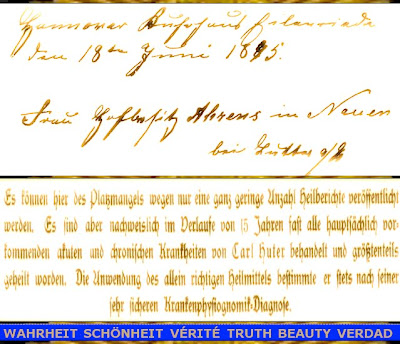 Hannover Kurhaus Eilenriede
den 18ten Juni 1895.
Frau Hofbesitz Ahrens in Neuen
bei Lutter a/B
Es können hier des Platzmangels wegen nur eine ganz geringe Anzahl Heilberichte veröffentlicht
werden. Es sind aber nachweislich im Verlaufe von 15 Jahren fast alle hauptsächlich vor-
kommenden akuten und chronischen Krankheiten von Carl Huter behandelt und größtenteils
geheilt worden. Die Anwendung des allein richtigen Heilmittels bestimmte er stets nach seiner
sehr sicheren Krankenphysiognomik-Diagnose.
WAHRHEIT SCHÖNHEIT VÉRITÉ TRUTH BEAUTY VERDAD